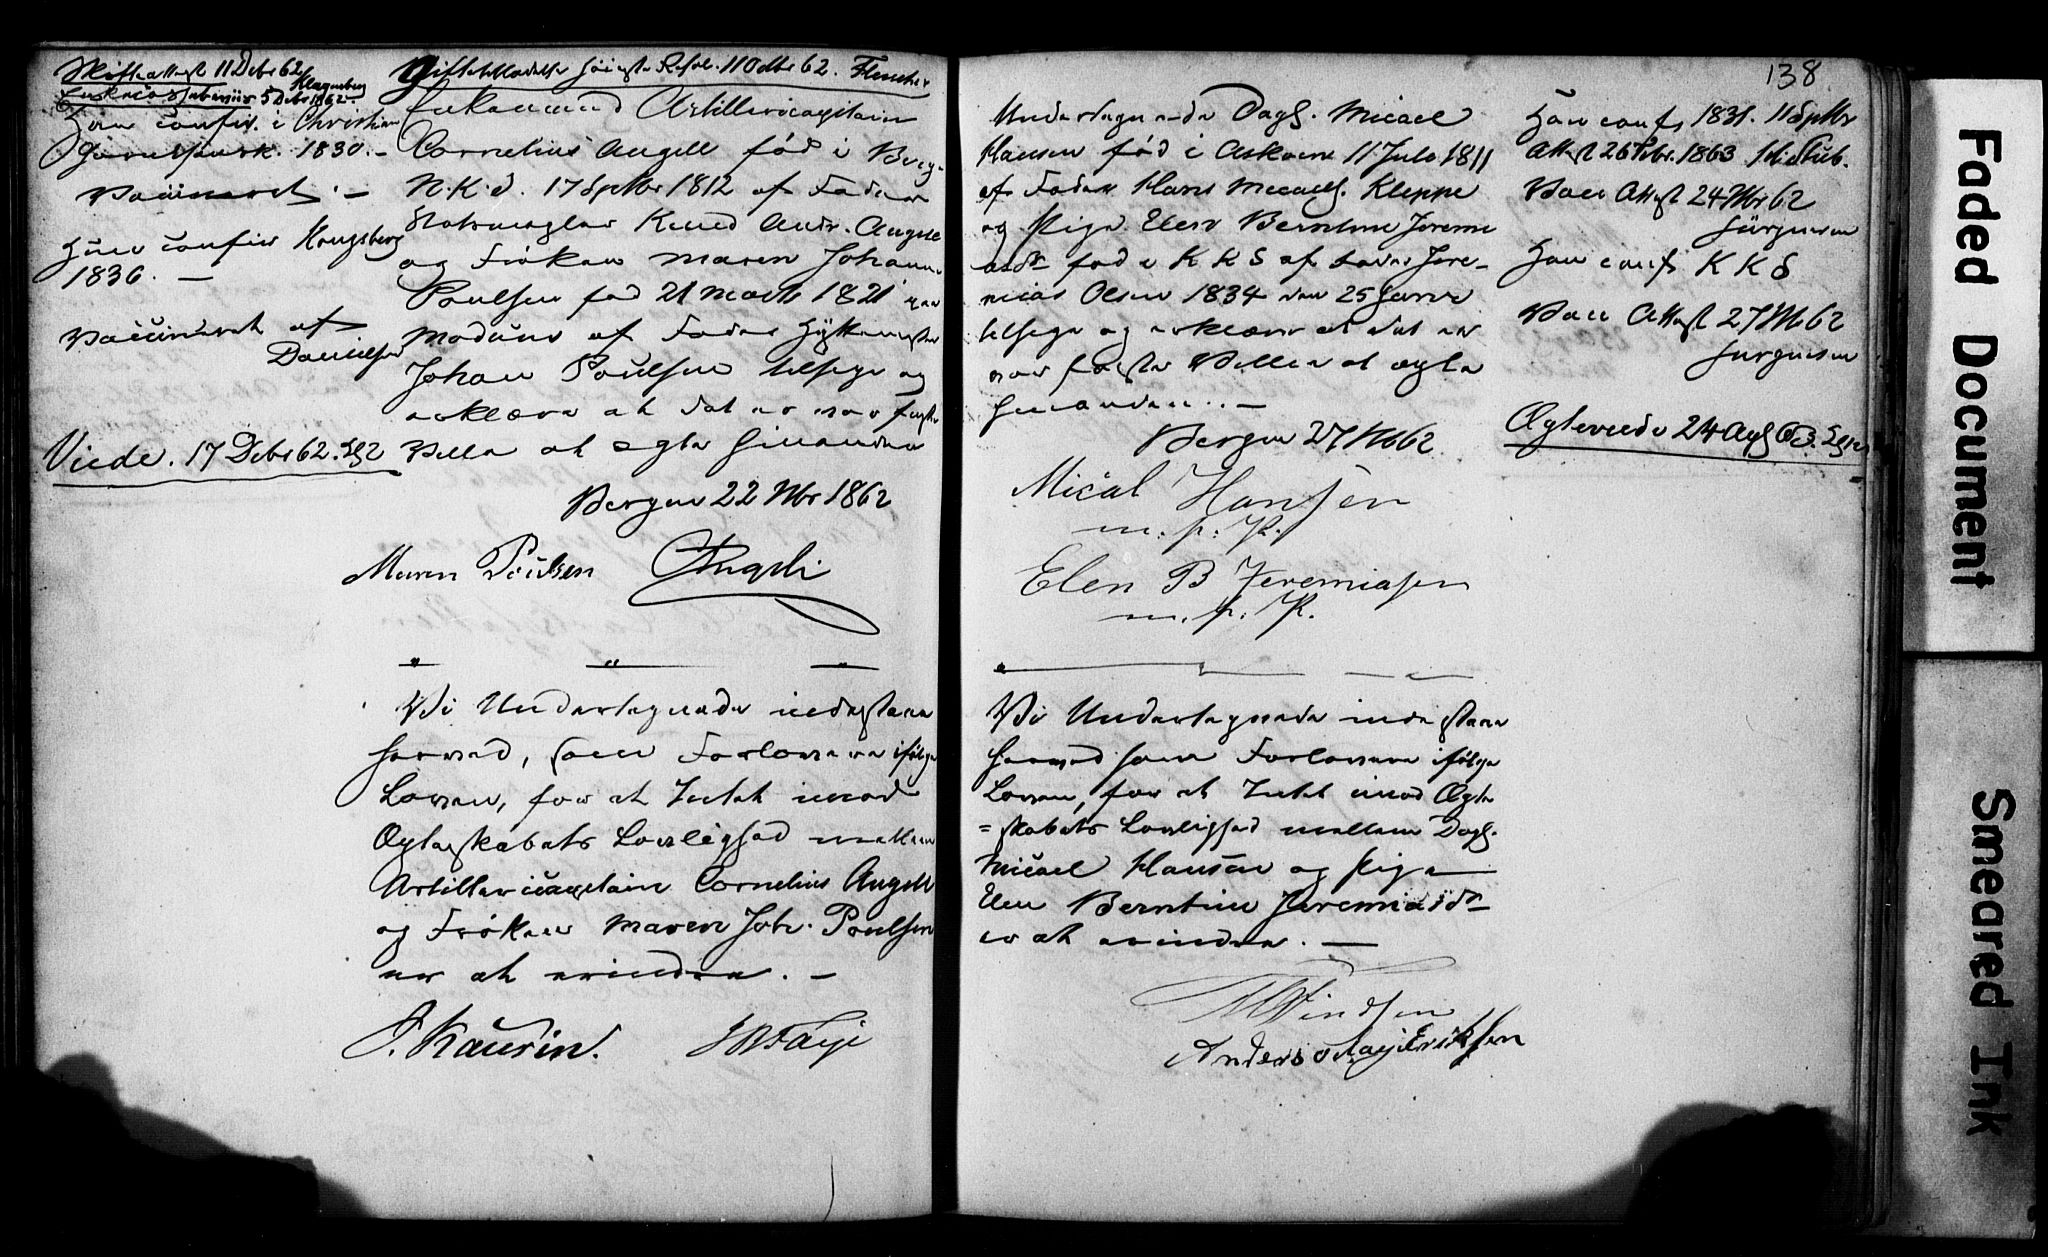 Skifteattest 11 Debr 62
Klagenberg
5 Debr 1862.
Han confir. i Christian
1830. –
Vaccineret. –
Hun confir Kongsberg
1836. –
Vaccineret af
Danielsen
Viede. 17 Debr 62.
Giftetilladelse Resol. 11 Octbr 62.
Enkemand Artillericapitain
Cornelius Angell fød i Berg.
N.K. d. 17 Septbr 1812 af Fader
Knud Andr. Angell
og Frøken Maren Johanne
Poulsen fød 21 Marts 1821 paa
Modums af Fader Hyttemester
Johan Poulsen tilsige og
erklære at det er vor faste
Villie at ægte hinanden
Bergen 22 Nbr 1862
Maren Poulsen CAngell
Vi Undertegnede indestaaer
herved, som Forlovere ifølge
Loven, for at Intet imod
Ægteskabets Lovlighed mellem
Artillericapitain Cornelius Angell
og Frøken Maren Joh. Poulsen
er at erindre. –
J. Kaurin.
138
Undertegnede Dagl. Micael
Hansen fød i Askøen 11 Julo 1811
af Fader Hans Micaels. Kleppe
og Pige Elen Berntine Jeremi
asdr fød i K K S af Fader Jere-
mias Olsen 1834 den 25 Janr
tilsige og erklære at det er
vor faste Villie at ægte
hinanden. –
Bergen 27 Nb 62
Mical Hansen
m. p. P.
Elen B Jeremiasen
m. p. P.
Vi Undertegnede indestaaer
herved som Forlovere ifølge
Loven, for at Intet imod Ægte
=skabets Lovlighed mellem Dagl.
Micael Hansen og Pige
Elen Berntine Jeremiasdr
er at erindre. –
Anders Erikssen
Han conf 1831. 11 Septbr
Attest 26 Febr. 1863
Vacc Attest 24 Nbr 62
Jürgensen
Hun conf K K S
Vacc Attest 27 Nb 62
Jurgensen
Ægteviede 24 Apl 63.
Faded Document
Smeared Ink